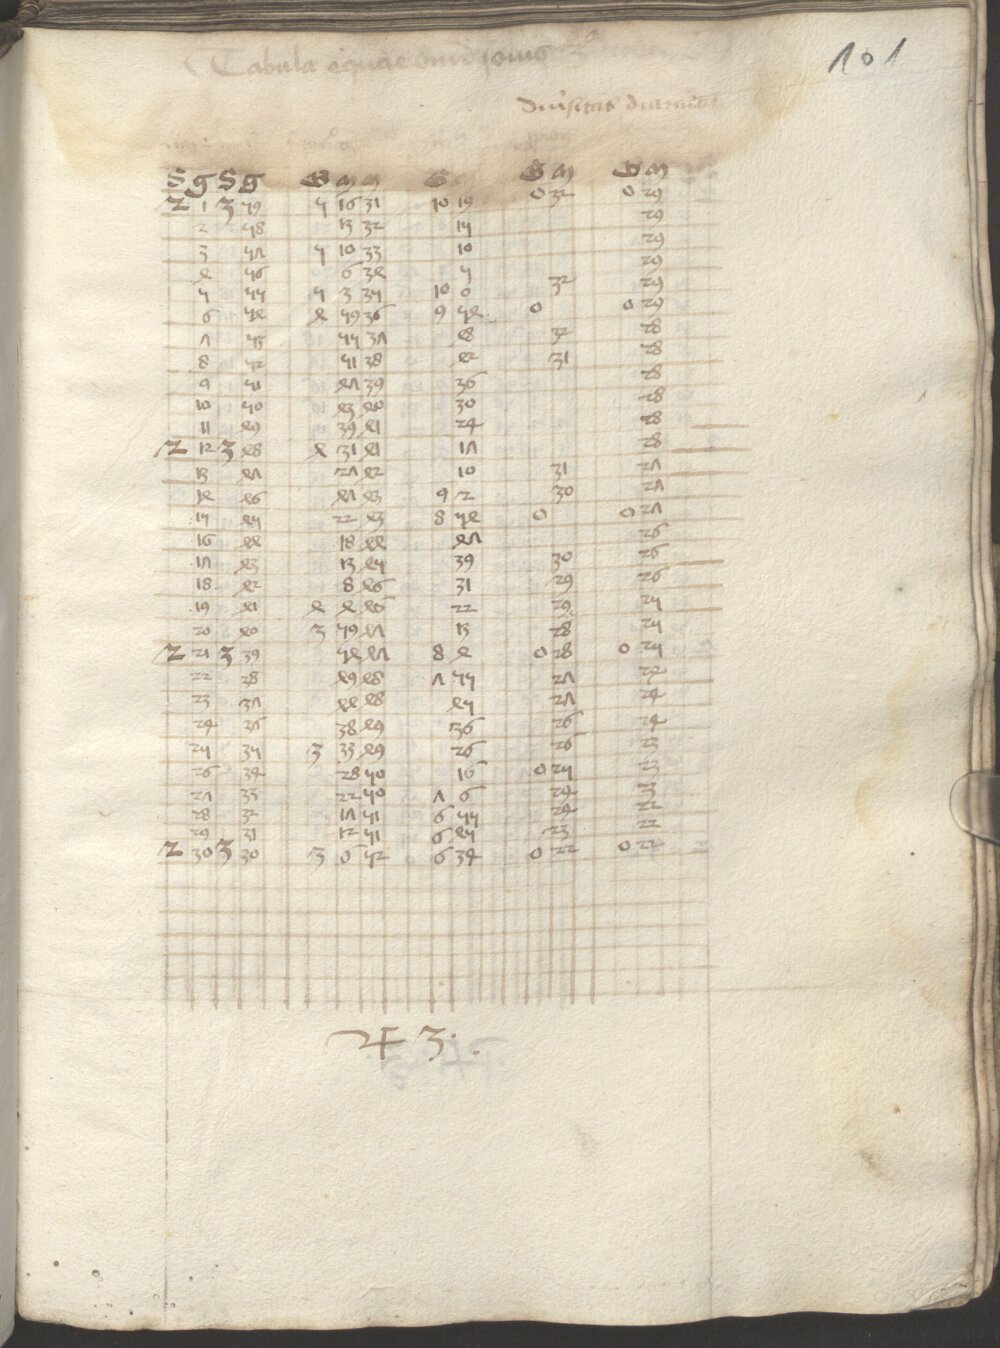 Tabula
101
diversitas
S g S g G m m G G m G m
2 1 3 59 5 16 31 10 19 0 32 0 29
2 58 13 32 15 29
3 57 5 10 33 10 29
4 56 6 34 5 29
5 55 5 3 35 10 0 32 29
6 54 4 59 36 9 54 0 0 29
7 53 55 37 48 32 28
8 52 51 38 42 31 28
9 51 47 39 36 28
10 50 43 40 30 28
11 49 39 41 24 28
2 12 3 48 4 31 41 17 28
13 47 27 42 10 31 27
14 46 47 43 9 2 30 27
15 45 22 43 8 54 0 0 27
16 44 18 44 47 26
17 43 13 45 39 30 26
18 42 8 46 31 29 26
19 41 4 4 46 22 29 25
20 40 3 59 47 13 28 25
2 21 3 39 54 47 8 4 0 28 0 25
22 28 49 48 7 55 27 24
23 37 44 48 45 27 24
24 26 38 49 36 26 24
25 35 3 33 49 26 26 23
26 34 28 50 16 0 25 23
27 33 22 50 7 6 24 23
28 32 17 51 6 55 24 22
29 31 12 51 6 45 23 22
2 30 3 30 3 6 52 6 34 0 22 0 22
♃ 3.